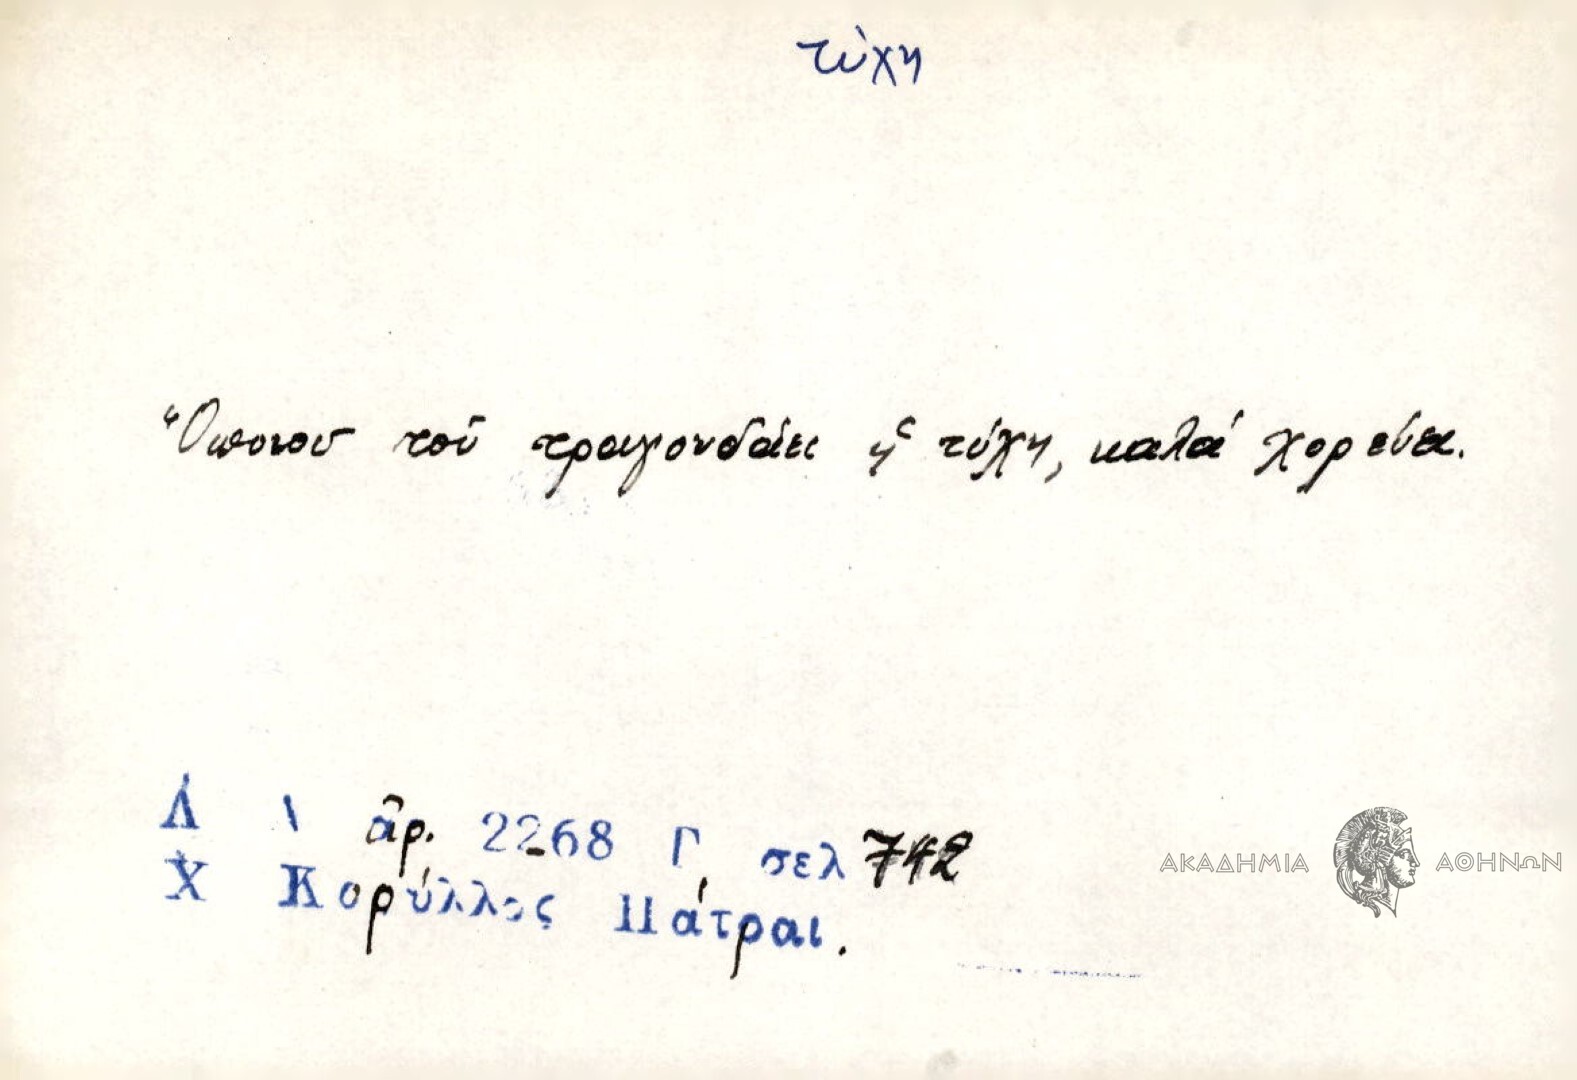 τύχη
Ὅποιου τοῦ τραγουδάει ἡ τύχη, καλά χορεύει.
Λ Α ἀρ. 2268 Γ, σελ 742
Χ Κορύλλος Πάτραι.
ΑΚΑΔΗΜΙΑ ΑΘΗΝΩΝ